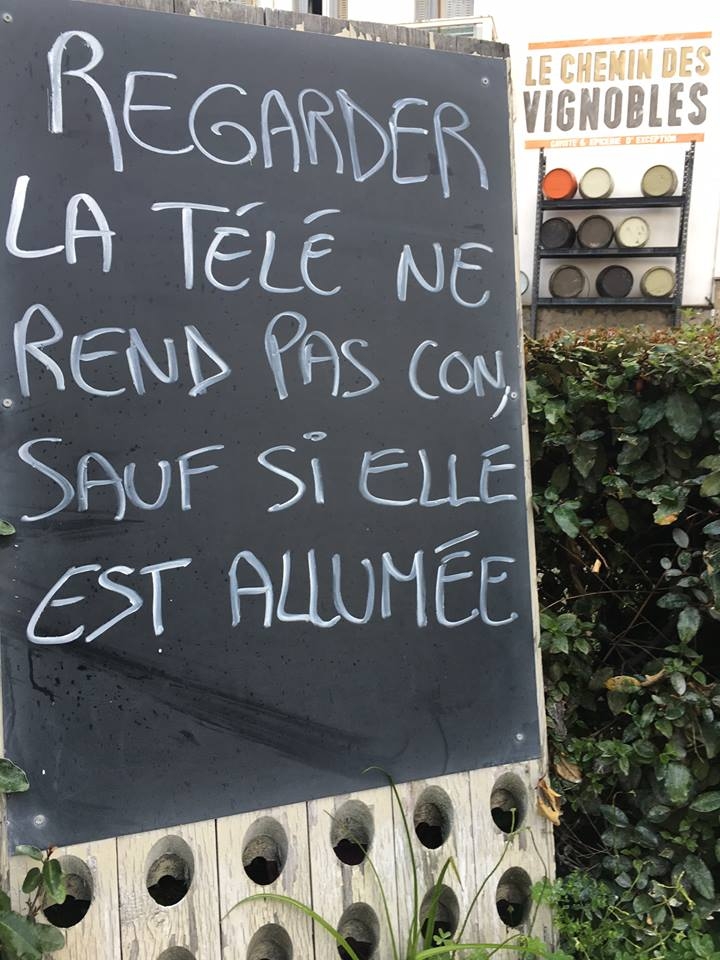 REGARDER
LA TÉLÉ NE
REND PAS CON,
SAUF SI ELLE
EST ALLUMÉE
LE CHEMIN DES
VIGNOBLES
CAVISTE & EPICERIE D'EXCEPTION